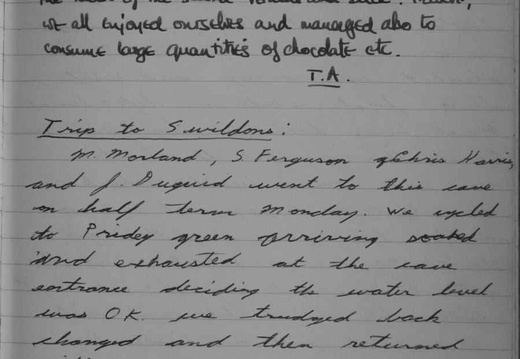 we all enjoyed ourselves and managed also to
consume large quantities of chocolate etc.
T.A.
Trip to Swildons:
M. Morland, S Ferguson & Chris Harris,
and J. Duguid went to this cave
on half term Monday. We cycled
to Priddy green arriving soaked
and exhausted at the cave
entrance deciding the water level
was OK. we trudged back
changed and then returned